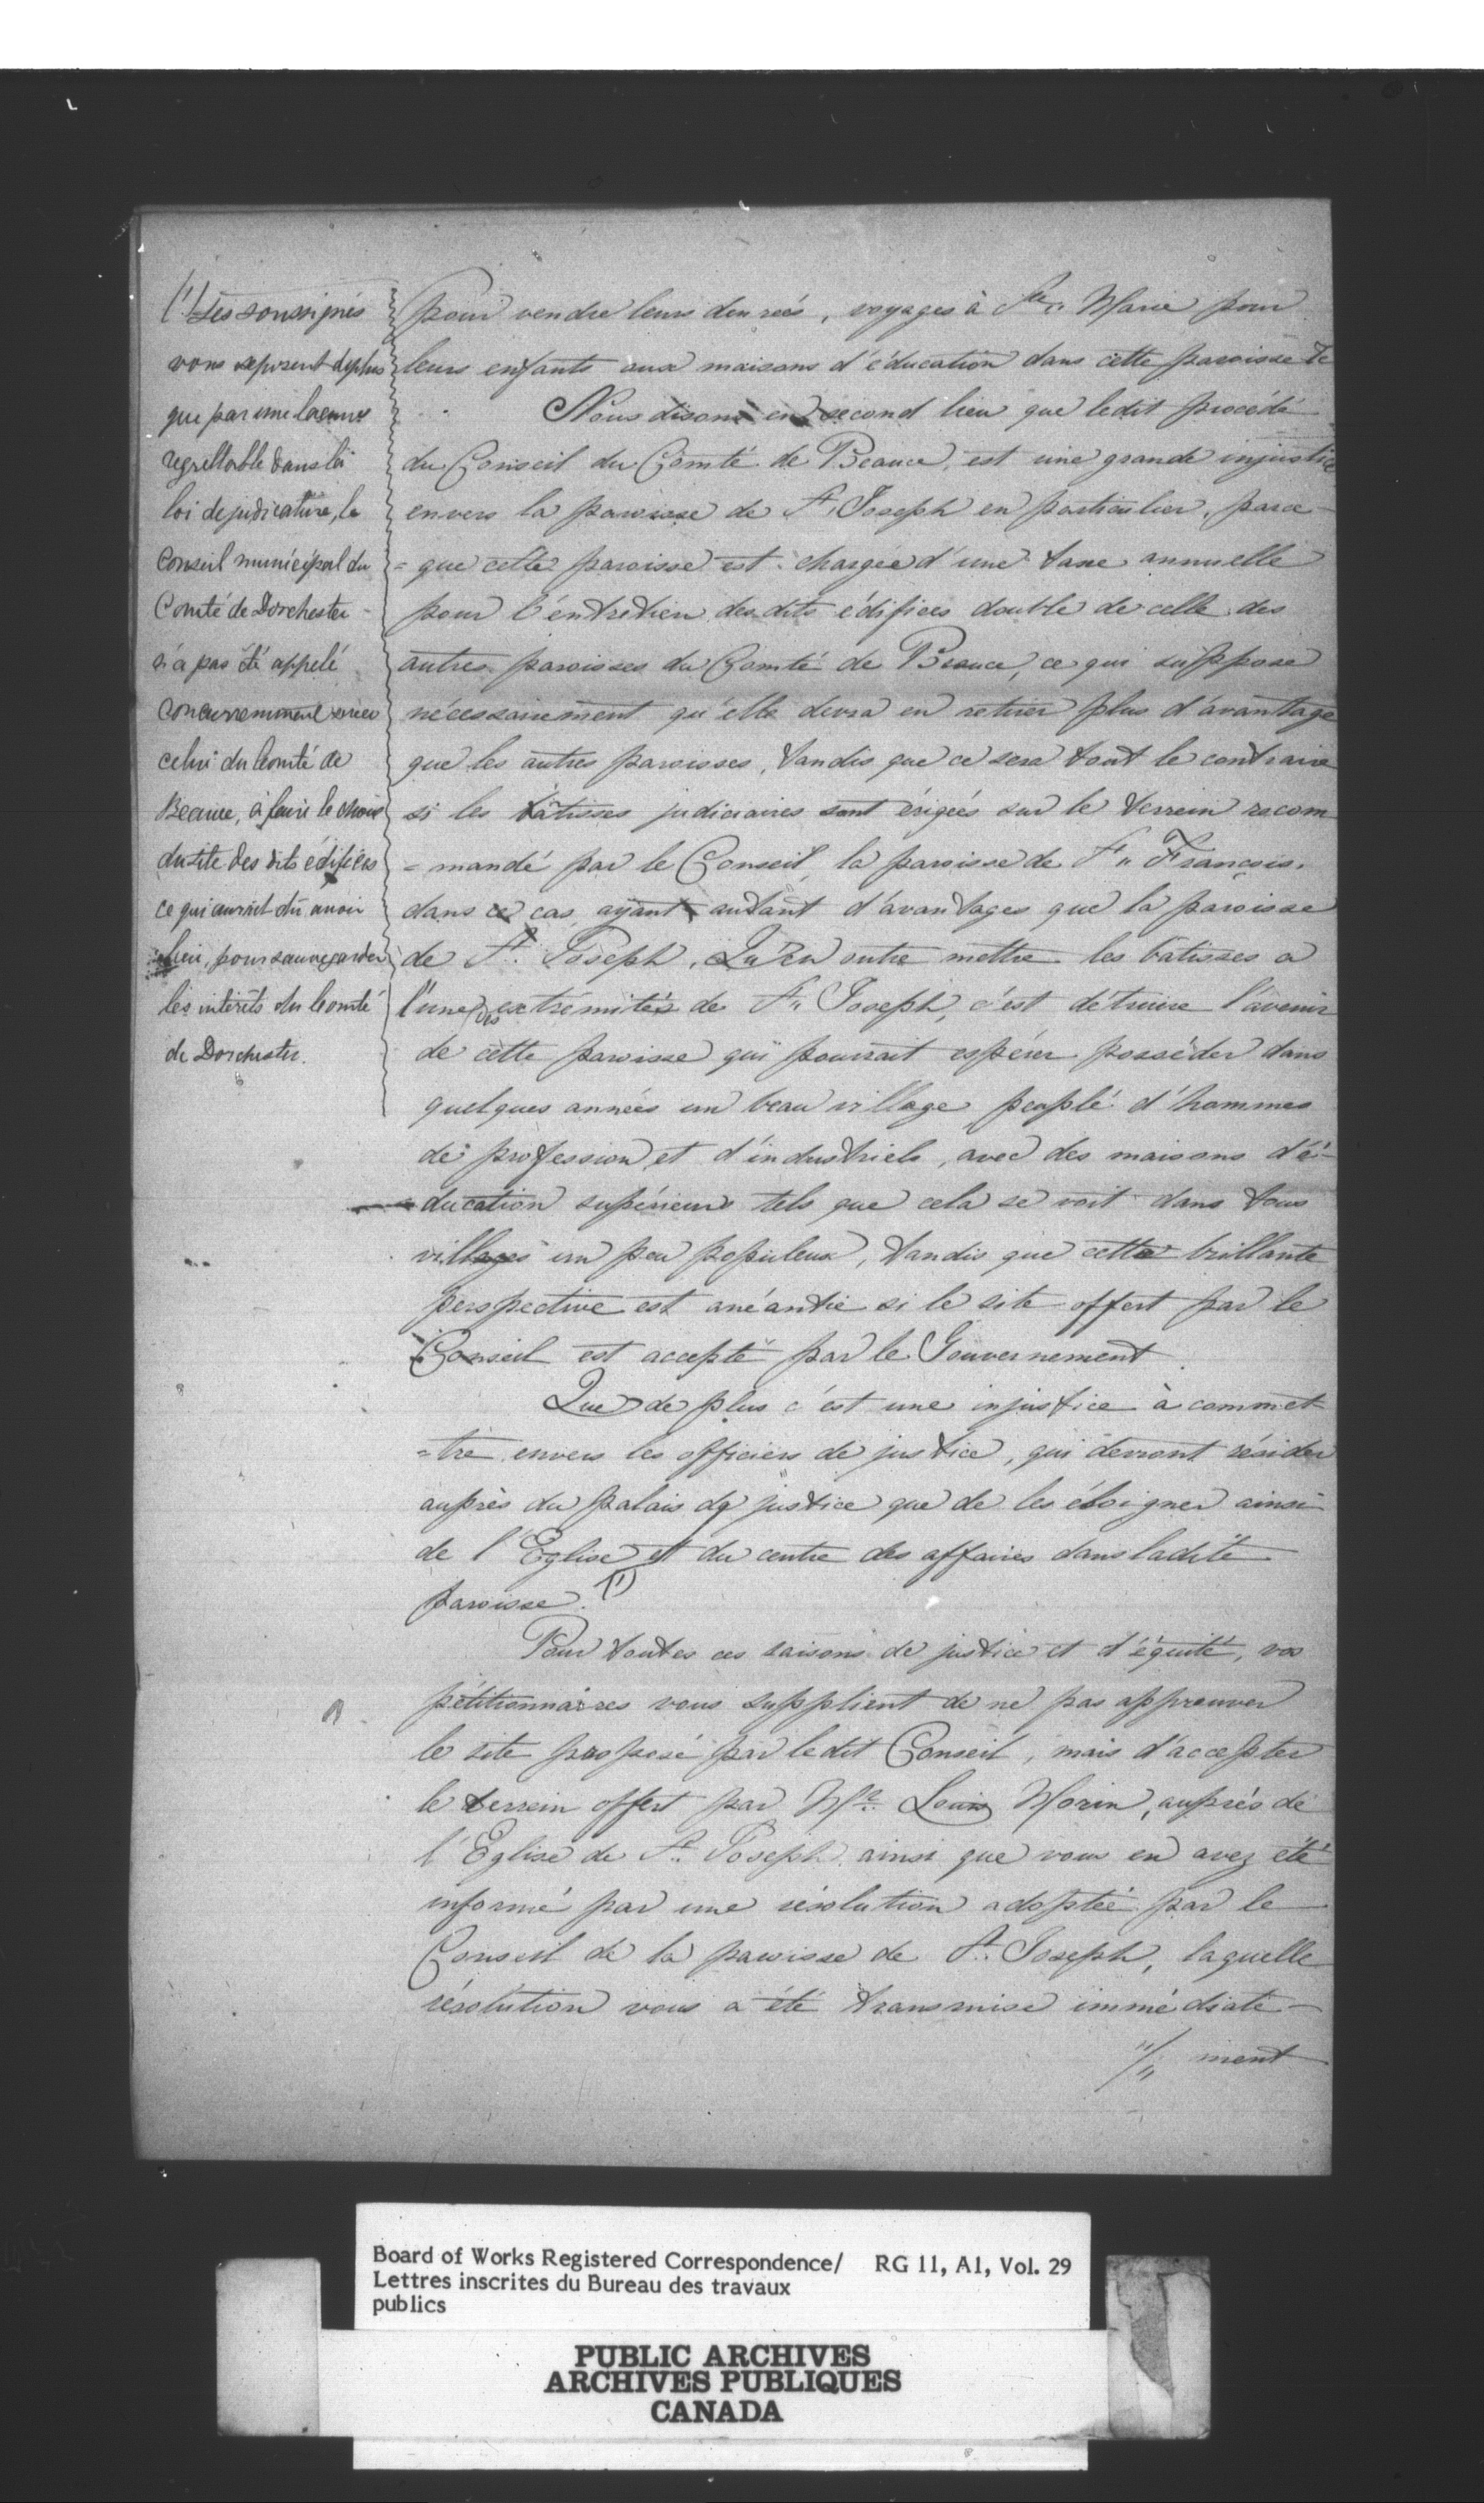 (1) Les soussignés
vous exposent de plus
que par une lacune
regrettable dans la
loi de judicature, le
Conseil municipal du
Comté de Dorchester
n'a pas été appelé
concurremment avec
celui du Comté de
Beauce, à faire le choix
du site des dits édifices
ce qui aurait dû avoir
lieu, pour sauvegarder
les intérêts du Comté
de Dorchester.
pour vendre leurs denrées, voyages à Ste. Marie pour
leurs enfants aux maisons d'éducation dans cette paroisse &c
Nous disons en second lieu que ledit procédé
du Conseil du Comté de Beauce, est une grande injustice
envers la paroisse de St. Joseph en particulier, parce
= que cette paroisse est chargée d'une taxe annuelle
pour l'entretien des dits édifices double de celle des
autres paroisses du Comté de Beauce, ce qui suppose
nécessairement qu'elle devra en retirer plus d'avantage
que les autres paroisses, tandis que ce sera tout le contraire
si les bâtisses judiciaires sont érigées sur le terrein recom
= mandé par le Conseil, la paroisse de St. François.
dans ce cas ayant autant d'avantages que la paroisse
de St. Joseph. Qu'en outre mettre les bâtisses a
l'une des extremités de St. Joseph, c'est détruire l'avenir
de cette paroisse qui pourrait espérer posséder dans
quelques années un beau village peuplé d'hommes
de profession et d'industriels, avec des maisons d'é-
ducation supérieure tels que cela se voit dans tous
villages un peu populeux, tandis que cette brillante
perspective est anéantie si le site offert par le
Conseil est accepté par le Gouvernement
Que de plus c'est une injustice à commet
=tre envers les officiers de justice, qui devront résider
auprès du palais de justice que de les éloigner ainsi
de l'Eglise et du centre des affaires dans ladite
paroisse. (1)
Pour toutes ces raisons de justice et d'équité, vos
pétitionnaires vous supplient de ne pas approuver
le site proposé par ledit Conseil, mais d'accepter
le terrein offert par Mr. Louis Morin, auprès de
l'Eglise de St. Joseph ainsi que vous en avez été
informé par une résolution adoptée par le
Conseil de la paroisse de St. Joseph, laquelle
résolution vous a été transmise immédiate-
"/" ment
Board of Works Registered Correspondence/ RG 11, A1, Vol. 29
Lettres inscrites du Bureau des travaux
publics
PUBLIC ARCHIVES
ARCHIVES PUBLIQUES
CANADA